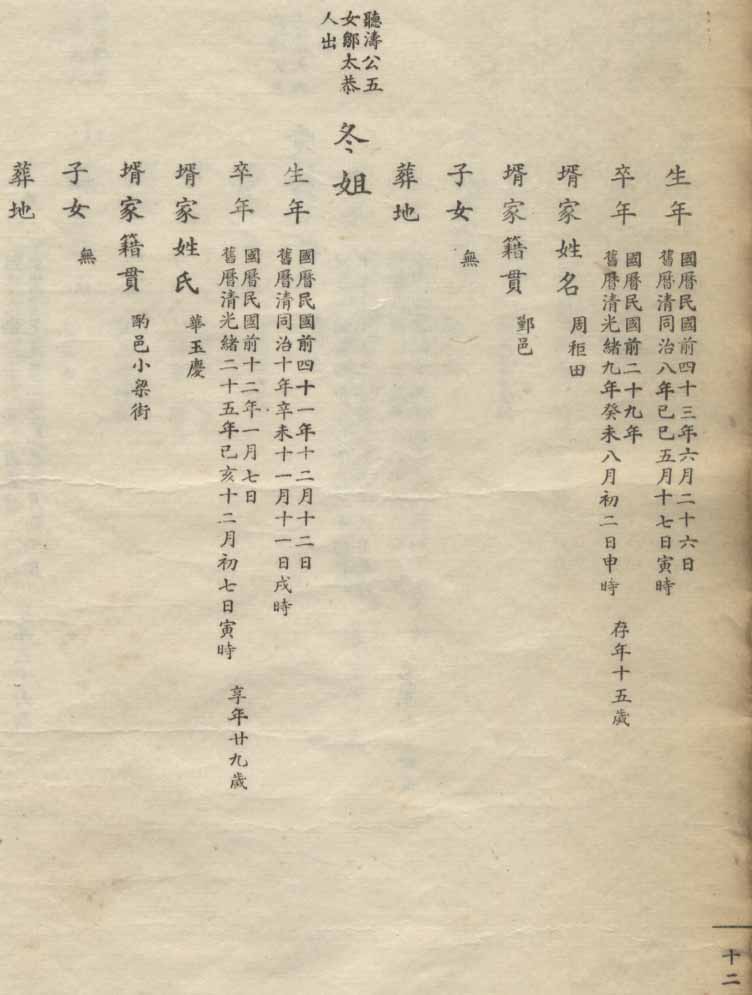 生年
國曆民國前四十三年六月二十六日
舊曆清同治八年己巳五月十七日寅時
卒年
國曆民國前二十九年
舊曆清光緒九年癸未八月初二日申時
存年十五歲
壻家姓名
周秬田
壻家籍貫
鄞邑
子女
無
葬地
聽濤公五
女鄒太恭
人出
冬姐
生年
國曆民國前四十一年十二月十二日
舊曆清同治十年辛未十一月十一日戌時
卒年
國曆民國前十二年一月七日
舊曆清光緒二十五年己亥十二月初七日寅時
享年廿九歲
壻家姓氏
華玉慶
壻家籍貫
邑小梁街
子女
無
葬地
十二